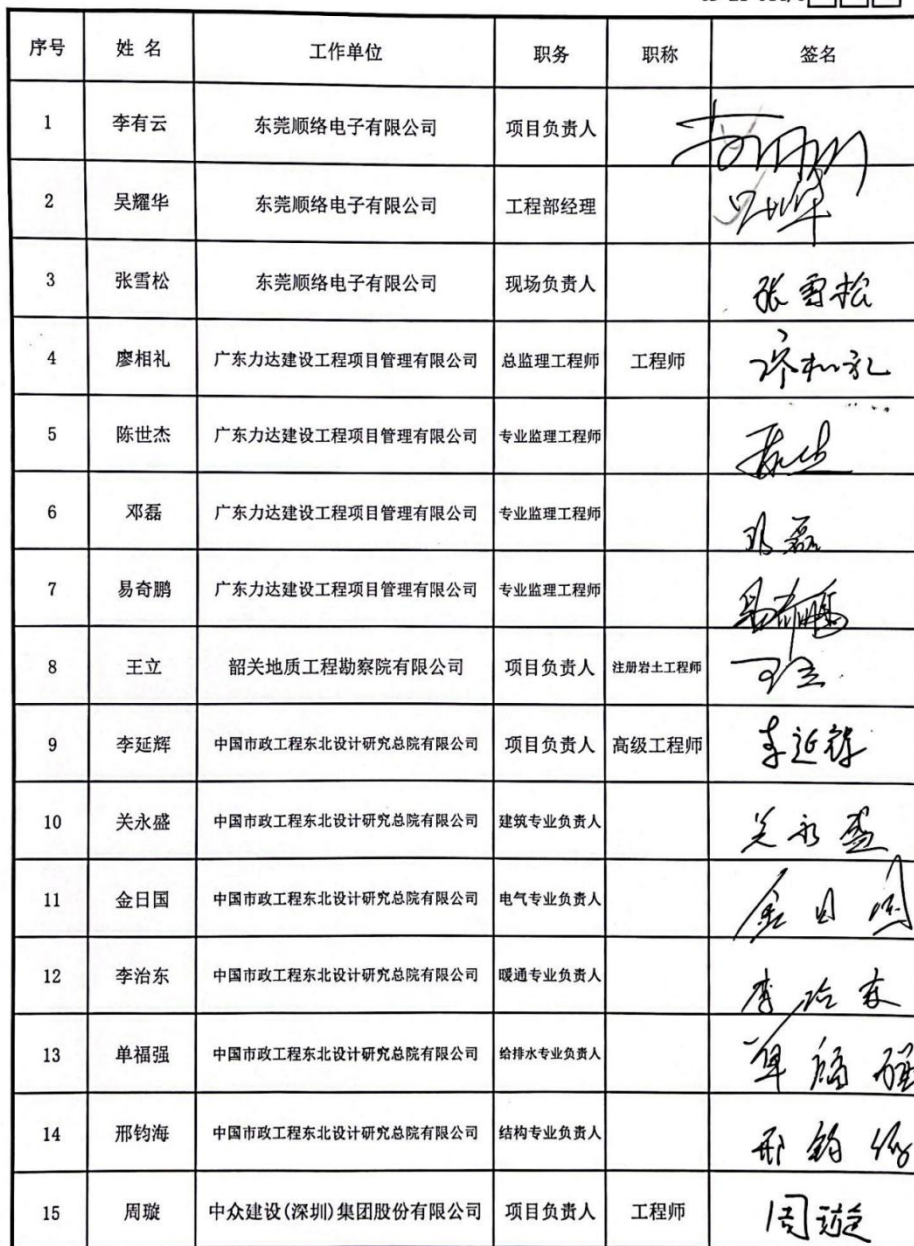 序号 姓 名 工作单位 职务 职称 签名
1 李有云 东莞顺络电子有限公司 项目负责人
2 吴耀华 东莞顺络电子有限公司 工程部经理
3 张雪松 东莞顺络电子有限公司 现场负责人 张雪松
4 廖相礼 广东力达建设工程项目管理有限公司 总监理工程师 工程师 廖相礼
5 陈世杰 广东力达建设工程项目管理有限公司 专业监理工程师
6 邓磊 广东力达建设工程项目管理有限公司 专业监理工程师 邓磊
7 易奇鹏 广东力达建设工程项目管理有限公司 专业监理工程师 易奇鹏
8 王立 韶关地质工程勘察院有限公司 项目负责人 注册岩土工程师 王立
9 李延辉 中国市政工程东北设计研究总院有限公司 项目负责人 高级工程师 李延辉
10 关永盛 中国市政工程东北设计研究总院有限公司 建筑专业负责人 关永盛
11 金日国 中国市政工程东北设计研究总院有限公司 电气专业负责人 金日国
12 李治东 中国市政工程东北设计研究总院有限公司 暖通专业负责人 李治东
13 单福强 中国市政工程东北设计研究总院有限公司 给排水专业负责人 单福强
14 邢钧海 中国市政工程东北设计研究总院有限公司 结构专业负责人 邢钧海
15 周璇 中众建设(深圳)集团股份有限公司 项目负责人 工程师 周璇